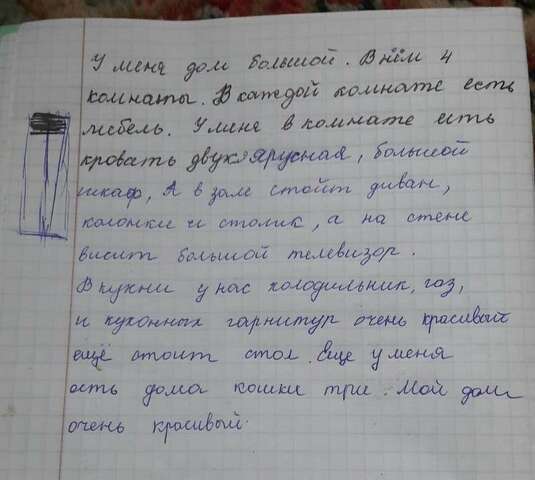 У меня дом большой. В нём 4
комнаты. В каждой комнате есть
мебель. У меня в комнате есть
кровать двухярусная, большой
шкаф, А в зале стоит диван,
колонки и столик, а на стене
висит большой телевизор.
В кухни у нас холодильник, газ,
и кухонных гарнитур очень красивый
ещё стоит стол. Еще у меня
есть дома кошки три. Мой дом
очень красивый.